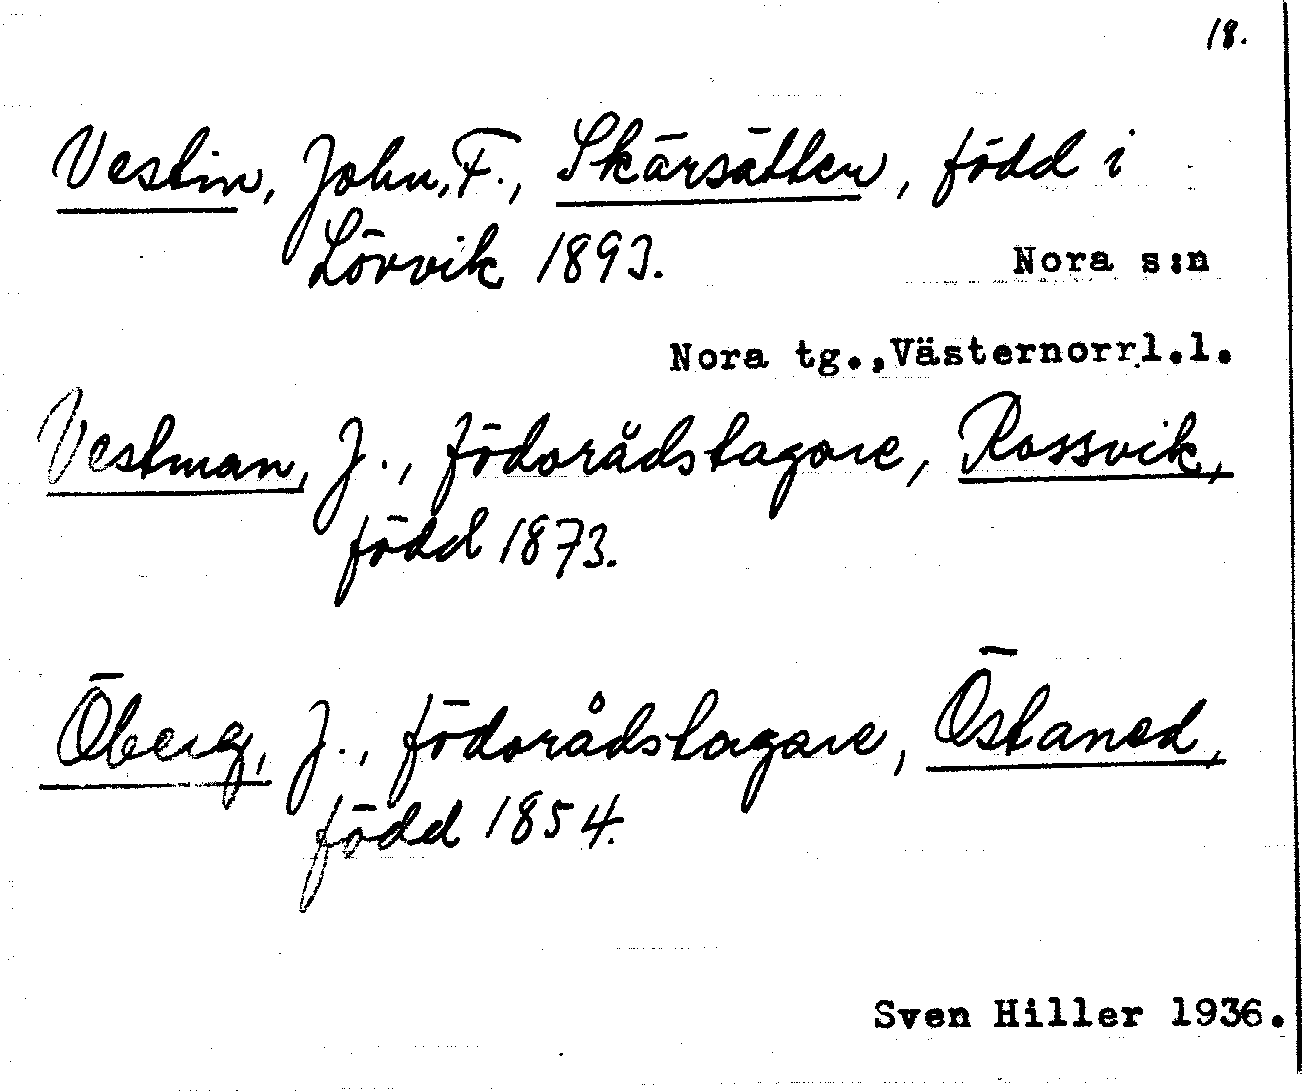 18.
Vestin, John, F., Skärsätter, född i
Lövvik 1893.
Nora s:n
Nora tg.,Västernorrl.l.
Vestman, J., födorådstagare, Rossvik,
född 1873.
Öberg, J., födorådstagare, Östaned,
född 1854.
Sven Hiller 1936.